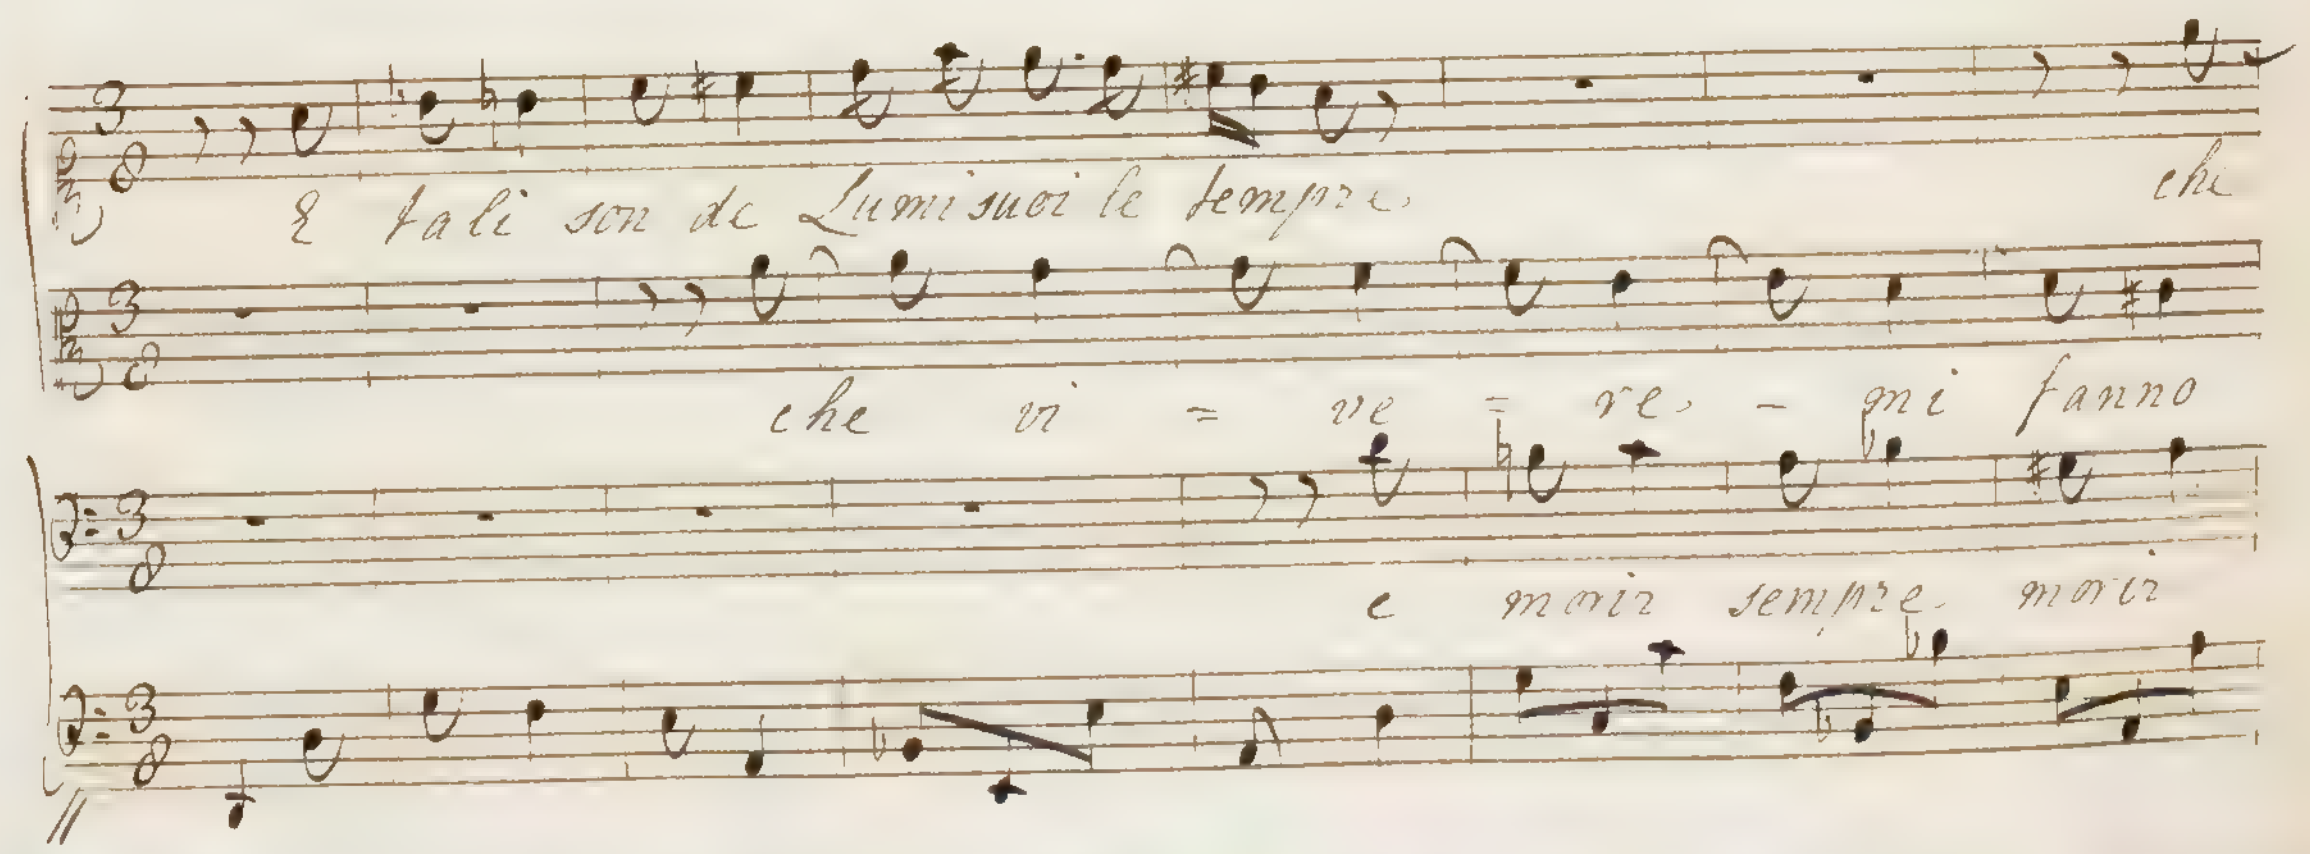 E tali son de Lumi suoi le tempre. che
che vi = ve = re. - mi fanno
e morir sempre. morir